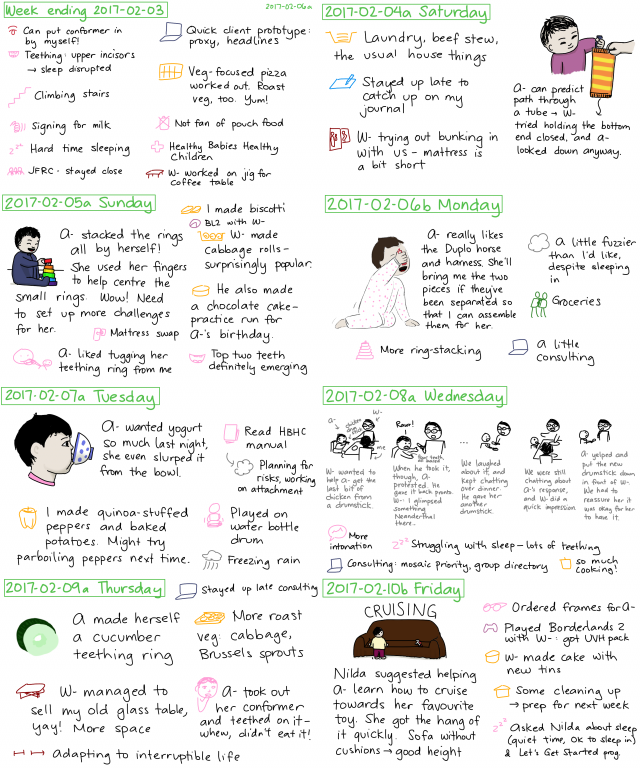 Week ending 2017-02-03
2017-02-06a
Can put conformer in
by myself!
Teething: upper incisors
→ sleep disrupted
Climbing stairs
Signing for milk
Hard time sleeping
JFRC - stayed close
Quick client prototype:
proxy, headlines
Veg-focused pizza
worked out. Roast
veg, too. Yum!
Not fan of pouch food
Healthy Babies Healthy
Children
W- worked on jig for
coffee table
2017-02-04a Saturday
Laundry, beef stew,
the usual house things
Stayed up late to
catch up on my
journal
W- trying out bunking in
with us - mattress is
a bit short
A- can predict
path through
a tube → W-
tried holding the bottom
end closed, and A-
looked down anyway.
2017-02-05a Sunday
A- stacked the rings
all by herself!
She used her fingers
to help centre the
small rings. Wow! Need
to set up more challenges
for her.
Mattress swap
A- liked tugging her
teething ring from me
I made biscotti
BL2 with W-
W- made
cabbage rolls -
surprisingly popular.
He also made
a chocolate cake -
practice run for
A-'s birthday.
Top two teeth
definitely emerging
2017-02-06b Monday
A- really likes
the Duplo horse
and harness. She'll
bring me the two
pieces if they've
been separated so
that I can assemble
them for her.
More ring-stacking
A little fuzzier
than I'd like,
despite sleeping
in
Groceries
A little
consulting
2017-02-07a Tuesday
A- wanted yogurt
so much last night,
she even slurped it
from the bowl.
I made quinoa-stuffed
peppers and baked
potatoes. Might try
parboiling peppers next time.
Read HBHC
manual
Planning for
risks, working
on attachment
Played on
water bottle
drum
Freezing rain
2017-02-08a Wednesday
A-
W-
me
Rawr!
...
W- wanted to
help A- get the
last bit of
chicken from
a drumstick.
When he took it,
though, A-
protested. He
gave it back pronto.
W- I glimpsed
something
Neanderthal
there.
We laughed
about it, and
kept chatting
over dinner.
He gave her
another
drumstick.
We were still
chatting about
A-'s response,
and W- did a
quick impression
A- yelped and
put the new
drumstick down
in front of W-.
We had to
reassure her it
was okay for
her to have it.
More
intonation
Struggling with sleep - lots of teething
Consulting: mosaic priority, group directory
so much
cooking!
2017-02-09a Thursday
Stayed up late consulting
A made herself
a cucumber
teething ring
W- managed to
sell my old glass table,
yay! More space
adapting to interruptible life
More roast
veg: cabbage,
Brussels sprouts
A- took out
her conformer
and teethed on it -
whew, didn't eat it!
2017-02-10b Friday
CRUISING
Nilda suggested helping
A- learn how to cruise
towards her favourite
toy. She got the hang of
it quickly. Sofa without
cushions → good height
Ordered frames for A-
Played Borderlands 2
with W-: got UVH pack
W- made cake with
new tins
Some cleaning up
→ prep for next week
Asked Nilda about sleep
(quiet time, OK to sleep in)
& Let's Get Started prog.